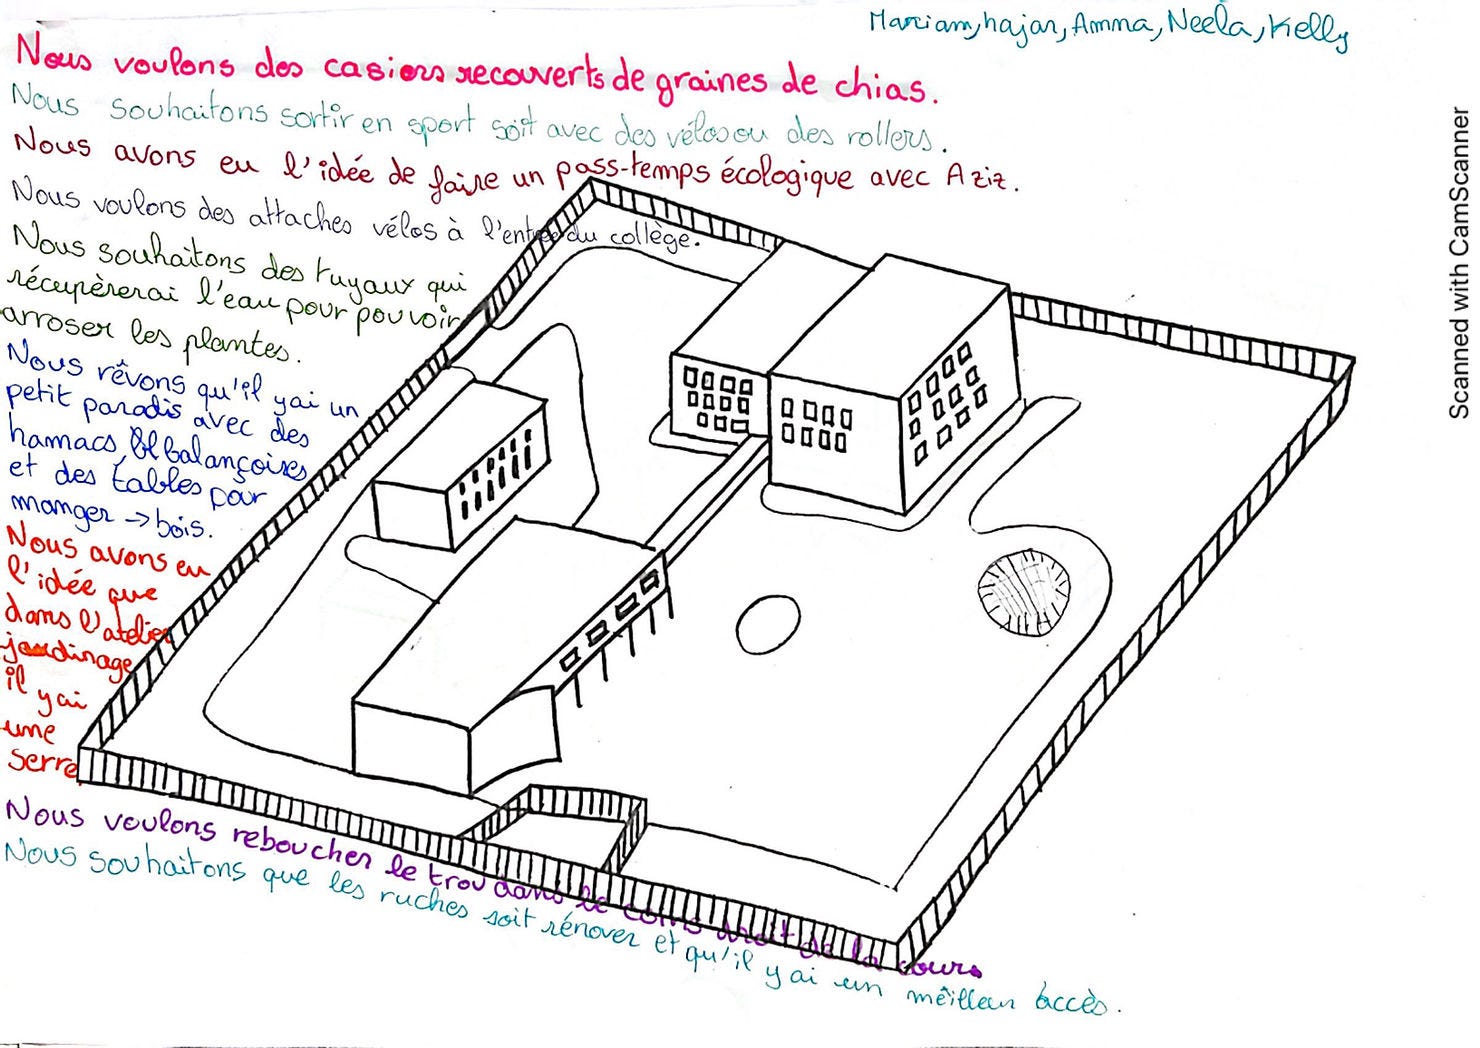 Mariam, hajar, Amna, Neela, Kelly
Nous voulons des casiers recouverts de graines de chias.
Nous souhaitons sortir en sport soit avec des vélos ou des rollers.
Nous avons eu l'idée de faire un pass-temps écologique avec Aziz.
Nous voulons des attaches vélos à l'entrée du collège.
Nous souhaitons des tuyaux qui
récupèrerai l'eau pour pouvoir
arroser les plantes.
Nous rêvons qu'il y ai un
petit paradis avec des
hamacs, balançoires
et des tables pour
manger → bois.
Nous avons eu
l'idée que
dans l'atelier
jardinage
il y ai
une
serre
Nous voulons reboucher le trou dans le coins droit de la cours
Nous souhaitons que les ruches soit rénover et qu'il y ai un meilleur accès.
Scanned with CamScanner